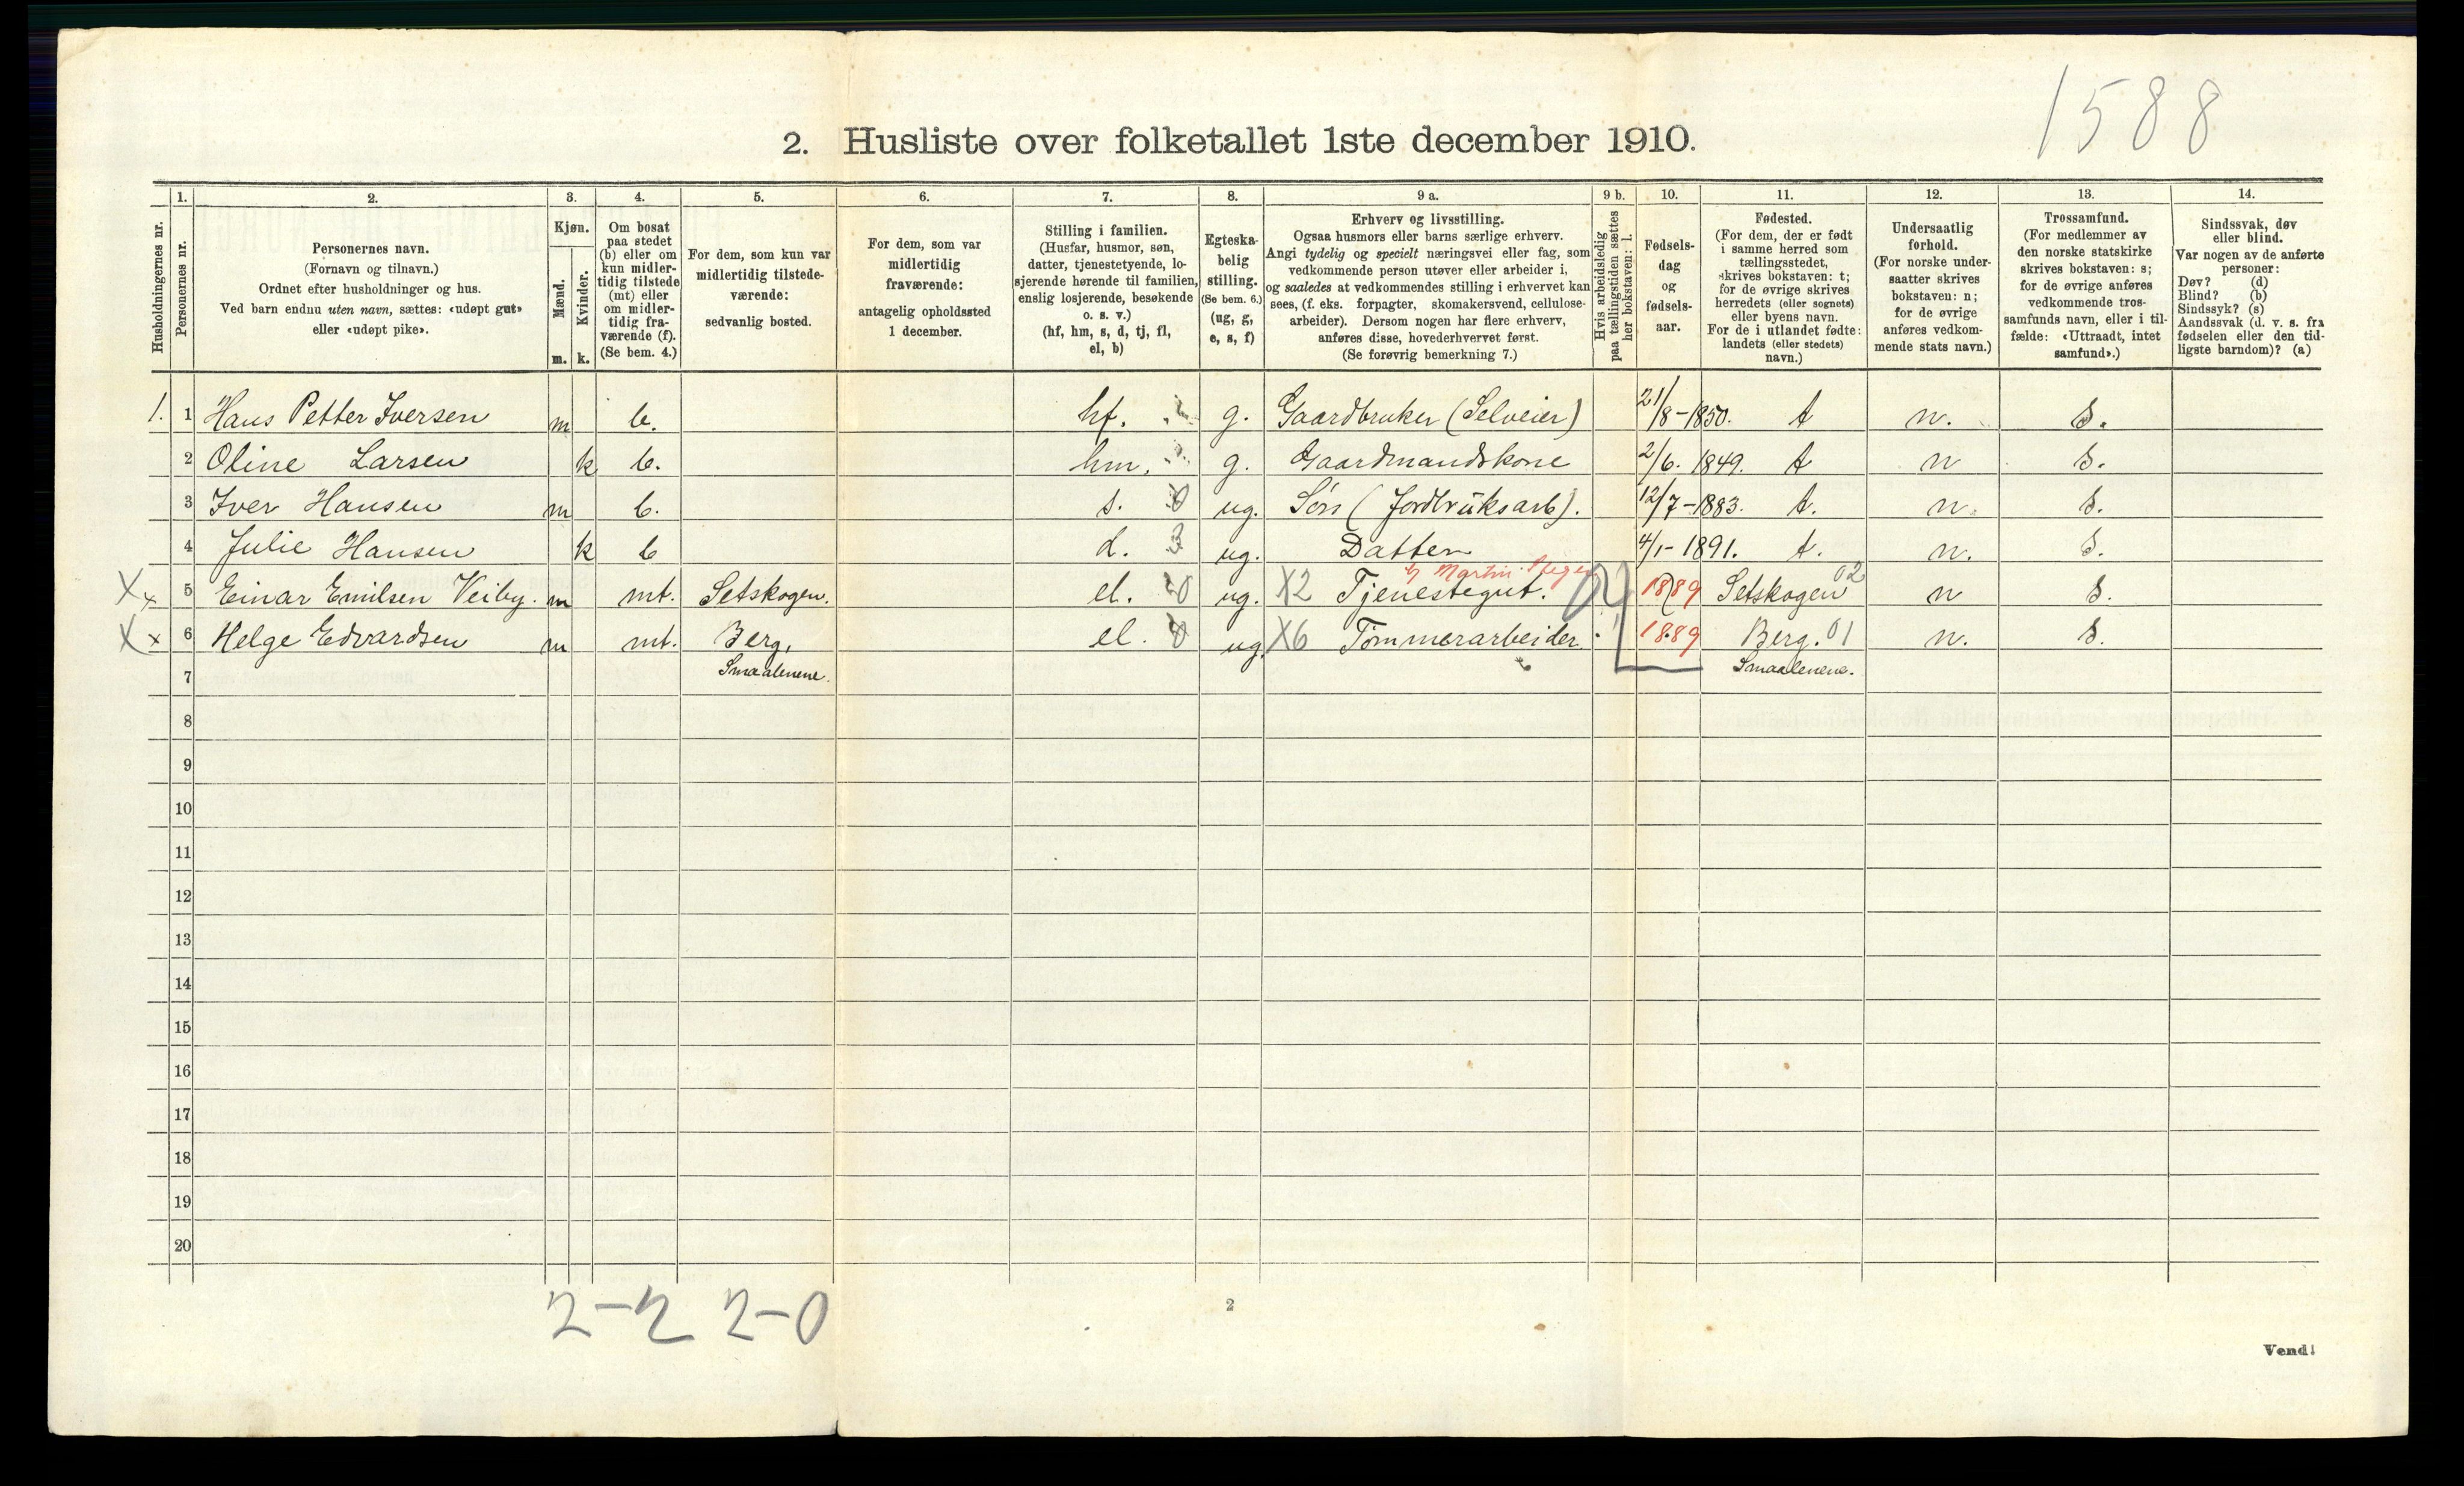 1588
2. Husliste over folketallet 1ste december 1910.
Husholdningernes nr.
1.
Personernes nr.
2.
Personernes navn.
(Fornavn og tilnavn.)
Ordnet efter husholdninger og hus.
Ved barn endnu uten navn, sættes: «udøpt gut»
eller «udøpt pike».
3.
Kjøn.
Mænd.
m.
Kvinder.
k.
4.
Om bosat
paa stedet
(b) eller om
kun midler-
tidig tilstede
(mt) eller
om midler-
tidig fra-
værende (f).
(Se bem. 4.)
5.
For dem, som kun var
midlertidig tilstede-
værende:
sedvanlig bosted.
6.
For dem, som var
midlertidig
fraværende:
antagelig opholdssted
1 december.
7.
Stilling i familien.
(Husfar, husmor, søn,
datter, tjenestetyende, lo-
sjerende hørende til familien,
enslig losjerende, besøkende
o. s. v.)
(hf, hm, s, d, tj, fl,
el, b)
8.
Egteska-
belig
stilling.
(Se bem. 6.)
(ug, g,
e, s, f)
9 a.
Erhverv og livsstilling.
Ogsaa husmors eller barns særlige erhverv.
Angi tydelig og specielt næringsvei eller fag, som
vedkommende person utøver eller arbeider i,
og saaledes at vedkommendes stilling i erhvervet kan
sees, (f. eks. forpagter, skomakersvend, cellulose-
arbeider). Dersom nogen har flere erhverv,
anføres disse, hovederhvervet først.
(Se forøvrig bemerkning 7.)
9 b.
Hvis arbeidsledig
paa tællingstiden sættes
her bokstaven: l.
10.
Fødsels-
dag
og
fødsels-
aar.
11.
Fødested.
(For dem, der er født
i samme herred som
tællingsstedet,
skrives bokstaven: t;
for de øvrige skrives
herredets (eller sognets)
eller byens navn.
For de i utlandet fødte:
landets (eller stedets)
navn.)
12.
Undersaatlig
forhold.
(For norske under-
saatter skrives
bokstaven: n;
for de øvrige
anføres vedkom-
mende stats navn.)
13.
Trossamfund.
(For medlemmer av
den norske statskirke
skrives bokstaven: s;
for de øvrige anføres
vedkommende tros-
samfunds navn, eller i til-
fælde: «Uttraadt, intet
samfund».)
14.
Sindssvak, døv
eller blind.
Var nogen av de anførte
personer:
Døv? (d)
Blind? (b)
Sindssyk? (s)
Aandssvak (d. v. s. fra
fødselen eller den tid-
ligste barndom)? (a)
1. 1 Hans Petter Iversen m b. hf. g. Gaardbruker (Selveier) 21/8-1850. t n. s.
2 Oline Larsen k b. hm. g. Gaardmandskone 2/6. 1849. t n s.
3 Iver Hansen m b. s. ug. Søn (Jordbruksarb). 12/7-1883. t. n. s.
4 Julie Hansen k b d. ug. Datter 4/1-1891. t. n. s.
Martin
Xx 5 Einar Emilsen Veiby. m mt. Setskogen. el. ug. X2 Tjenestegut. 1889 Setskogen 02 n s.
Xx 6 Helge Edvardsen m mt. Berg, el. ug. X6 Tømmerarbeider. 1889 Berg. 01 n. s.
7 Smaalenene. Smaalenene.
8
9
10
11
12
13
14
15
16
17
18
19
20
2-2 2-0
2
Vend!